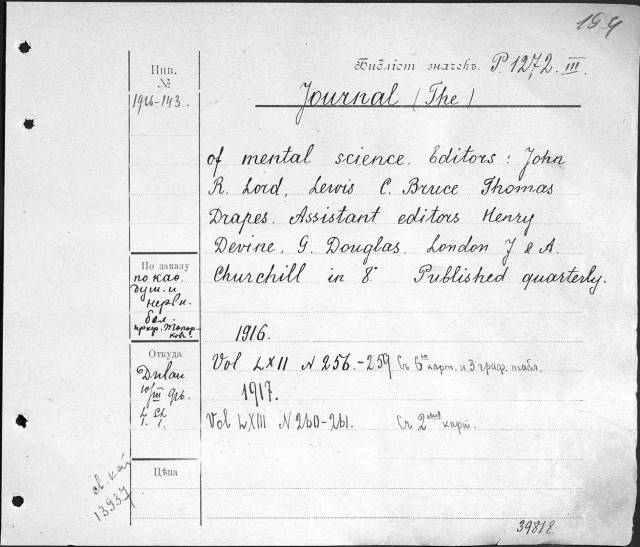 199
Библіот значекъ. P. 1272. III.
Инв.
№
1926-143.
Journal (The)
of mental science. Editors: John
R. Lord, Lewis C. Bruce Thomas
Drapes. Assistant editors Henry
Devine, G. Douglas. London J & A.
Churchill in 8° Published quarterly.
По заказу
по каѳ.
душ. и
нервн.
бол.
1916.
Vol LXII N 256.-259 Съ 6ю карт. и 3 граф. табл.
1917.
Vol LXIII N. 260-261. Съ 2мя карт.
Откуда
Dulau
10/III 926.
Цѣна
св. кат
13937
39818.